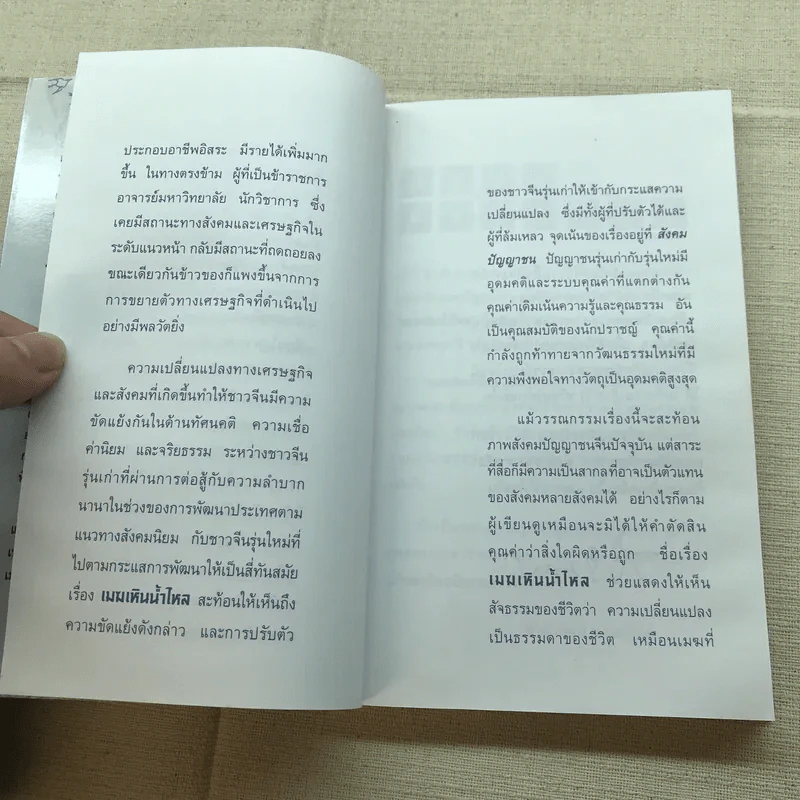 ประกอบอาชีพอิสระ มีรายได้เพิ่มมาก
ขึ้น ในทางตรงข้าม ผู้ที่เป็นข้าราชการ
อาจารย์มหาวิทยาลัย นักวิชาการ ซึ่ง
เคยมีสถานะทางสังคมและเศรษฐกิจใน
ระดับแนวหน้า กลับมีสถานะที่ถดถอยลง
ขณะเดียวกันข้าวของก็แพงขึ้นจากการ
การขยายตัวทางเศรษฐกิจที่ดำเนินไป
อย่างมีพลวัตยิ่ง
ความเปลี่ยนแปลงทางเศรษฐกิจ
และสังคมที่เกิดขึ้นทำให้ชาวจีนมีความ
ขัดแย้งกันในด้านทัศนคติ ความเชื่อ
ค่านิยม และจริยธรรม ระหว่างชาวจีน
รุ่นเก่าที่ผ่านการต่อสู้กับความลำบาก
นานาในช่วงของการพัฒนาประเทศตาม
แนวทางสังคมนิยม กับชาวจีนรุ่นใหม่ที่
ไปตามกระแสการพัฒนาให้เป็นสี่ทันสมัย
เรื่อง เมฆเหินน้ำไหล สะท้อนให้เห็นถึง
ความขัดแย้งดังกล่าว และการปรับตัว
ของชาวจีนรุ่นเก่าให้เข้ากับกระแสความ
เปลี่ยนแปลง ซึ่งมีทั้งผู้ที่ปรับตัวได้และ
ผู้ที่ล้มเหลว จุดเน้นของเรื่องอยู่ที่ สังคม
ปัญญาชน ปัญญาชนรุ่นเก่ากับรุ่นใหม่มี
อุดมคติและระบบคุณค่าที่แตกต่างกัน
คุณค่าเดิมเน้นความรู้และคุณธรรม อัน
เป็นคุณสมบัติของนักปราชญ์ คุณค่านี้
กำลังถูกท้าทายจากวัฒนธรรมใหม่ที่มี
ความพึงพอใจทางวัตถุเป็นอุดมคติสูงสุด
แม้วรรณกรรมเรื่องนี้จะสะท้อน
ภาพสังคมปัญญาชนจีนปัจจุบัน แต่สาระ
ที่สื่อก็มีความเป็นสากลที่อาจเป็นตัวแทน
ของสังคมหลายสังคมได้ อย่างไรก็ตาม
ผู้เขียนดูเหมือนจะมิได้ให้คำตัดสิน
คุณค่าว่าสิ่งใดผิดหรือถูก ชื่อเรื่อง
เมฆเหินน้ำไหล ช่วยแสดงให้เห็น
สัจธรรมของชีวิตว่า ความเปลี่ยนแปลง
เป็นธรรมดาของชีวิต เหมือนเมฆที่